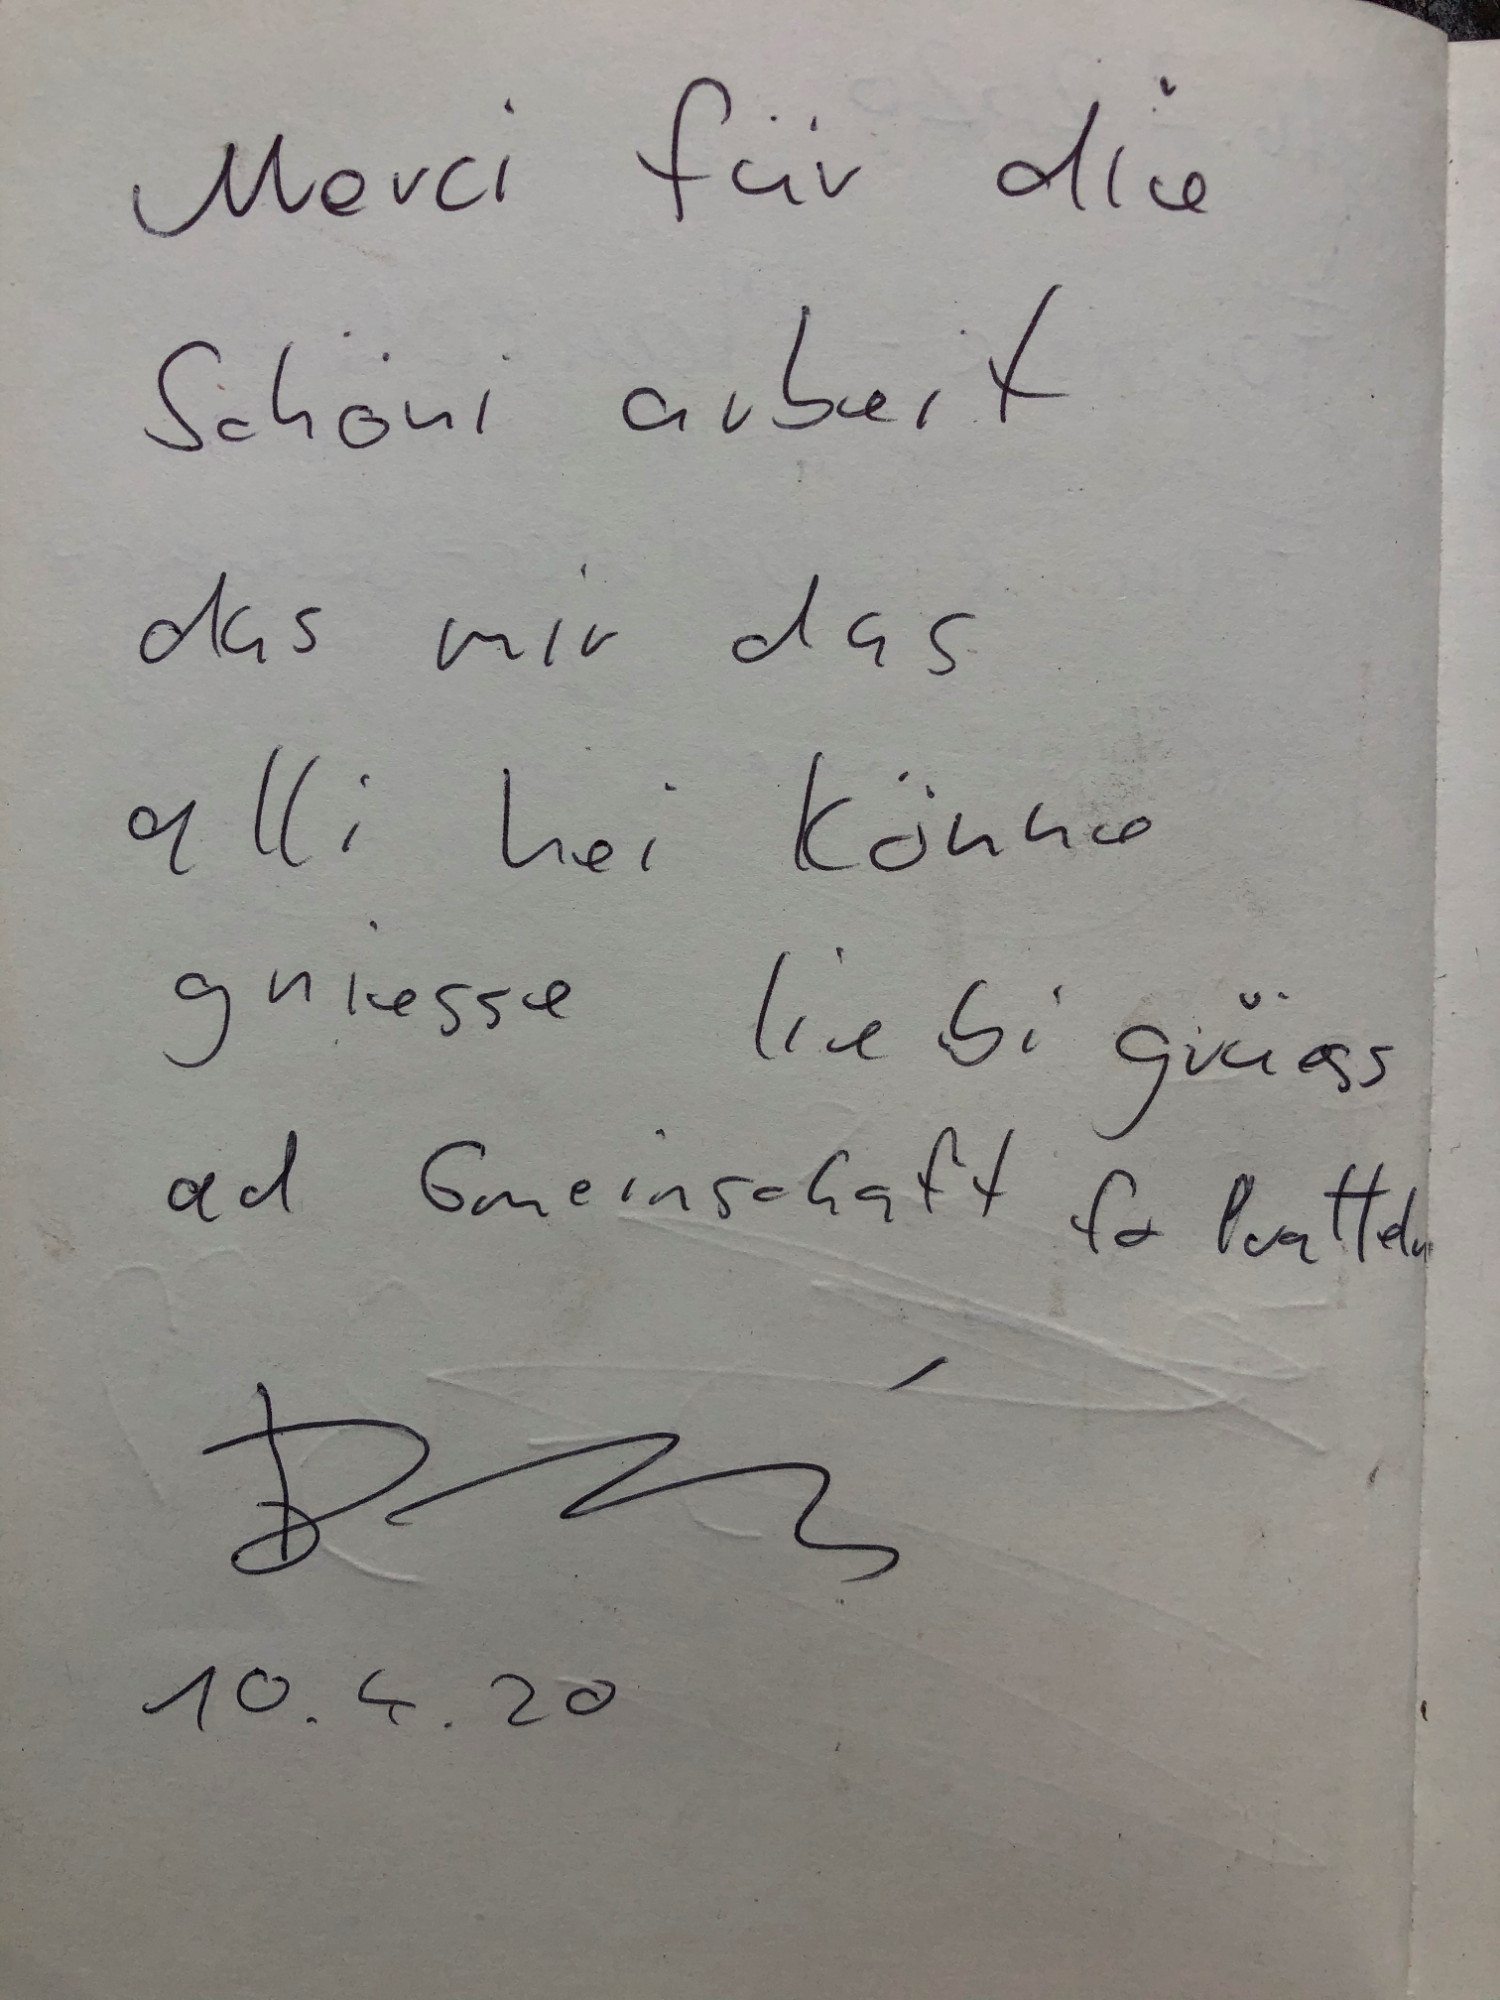 Merci für die
Schöni arbeit
das mir das
alli hei könne
gniesse liebi grüess
ad Gmeinschaft fo Pratteln
10.4.20